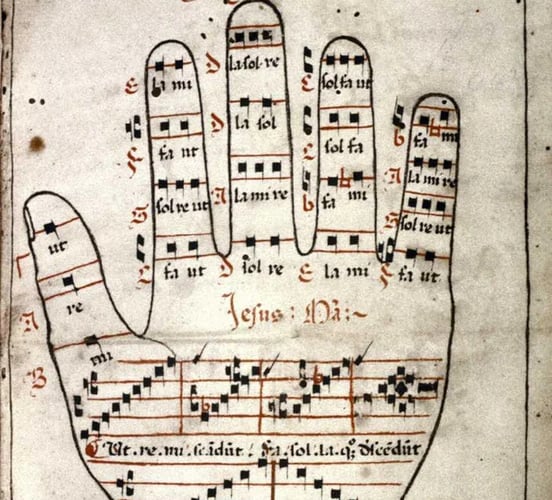 D la sol re
E la mi C sol fa ut
D la sol b fa mi
F fa ut C sol fa
A la mi re A la mi re
G sol re ut b fa mi G sol re ut
C fa ut D sol re E la mi F fa ut
Γ ut
A re
B mi
Jesus : Ma :~
Ut . re . mi . scādūt / fa . sol . la . qꝫ dſcēdūt